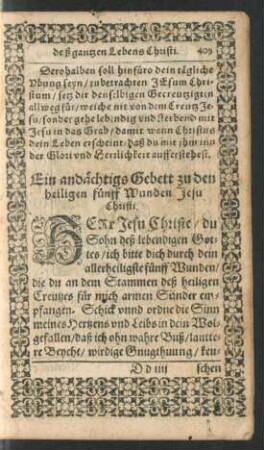 deß gantzen Lebens Christi. 409
Derohalben soll hinfüro dein tägliche
Vbung seyn / zubetrachten JEsum Chri-
stum / setz dir denselbigen Gecreutzigten
allweg für / weiche nit von dem Creutz Je-
su / sonder gehe lebendig vnd sterbend mit
Jesu in das Grab / damit wann Christus
dein Leben erscheint / daß du mit jhm inn
der Glori vnd Herrlichkeit aufferstehest.
Ein andächtigs Gebett zu den
heiligen fünff Wunden Jesu
Christi.
HERr Jesu Christe / du
Sohn deß lebendigen Got-
tes / ich bitte dich durch dein
allerheiligste fünff Wunden /
die du an dem Stammen deß heiligen
Creutzes für mich armen Sünder em-
pfangen. Schick vnnd ordne die Sinn
meines Hertzens vnd Leibs in dein Wol-
gefallen / daß ich ohn wahre Buß / lautte-
re Beycht / wirdige Gnugthuung / keu-
D d iiij schen